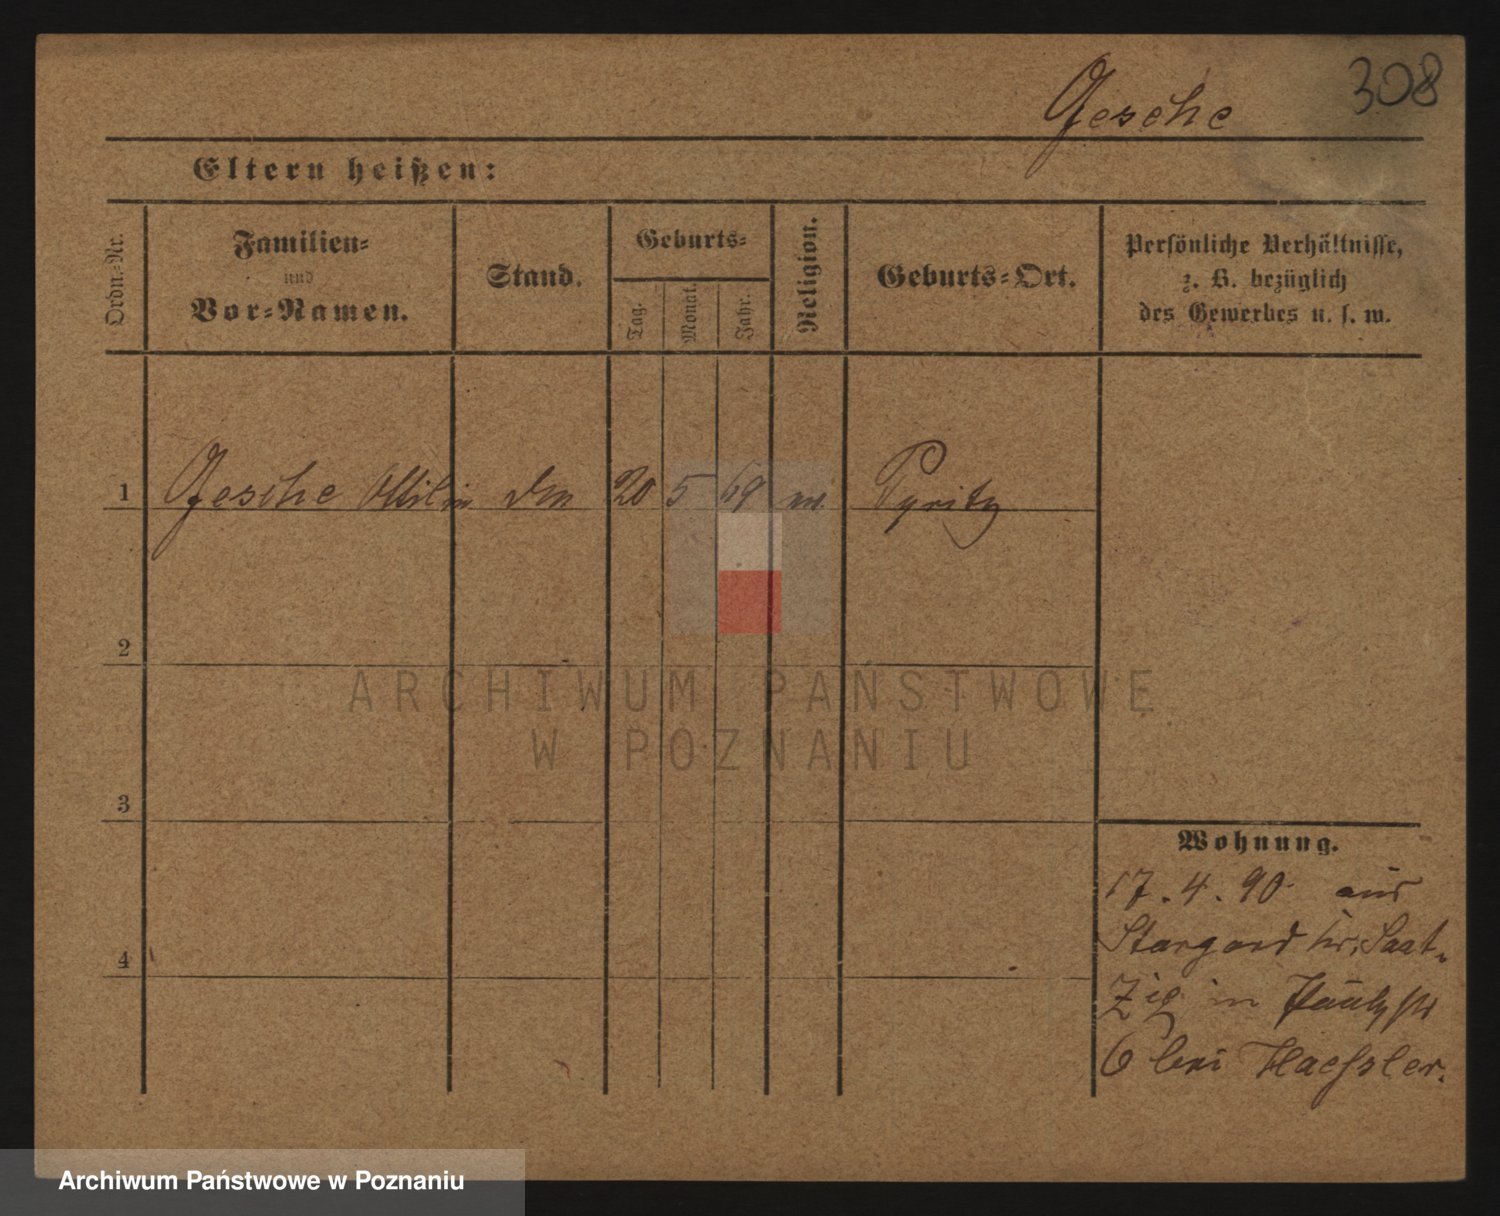 308
Gesche
Eltern heißen:
Ordn.-Nr.
Familien-
und
Vor-Namen.
Stand.
Geburts-
Tag.
Monat.
Jahr.
Religion.
Geburts-Ort.
Persönliche Verhältnisse,
z. B. bezüglich
des Gewerbes u. s. w.
1 Gesche 20 5 69 Pyritz
2
ARCHIWUM PAŃSTWOWE
W POZNANIU
3
Wohnung.
17.4.90 aus
Stargard Kr. Saat-
4
zig in
6 bei Haessler.
Archiwum Państwowe w Poznaniu